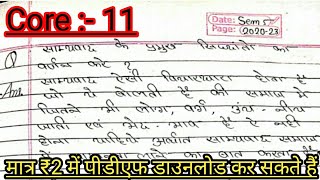 Core :- 11
Date: Sem 5
Page: (2020-23)
साम्यवाद के प्रमुख सिद्धान्तों का
वर्णन करे ?
Ans साम्यवाद ऐसी विचारधारा होता है
जो ये बोलती है की समाज में
जितने भी लोग, वर्ग, ऊंच - नीच
जाती एवं भेद - भाव है ये नहीं
होना चाहिये अर्थात साम्यवाद समाज
मात्र ₹2 में पीडीएफ डाउनलोड कर सकते हैं